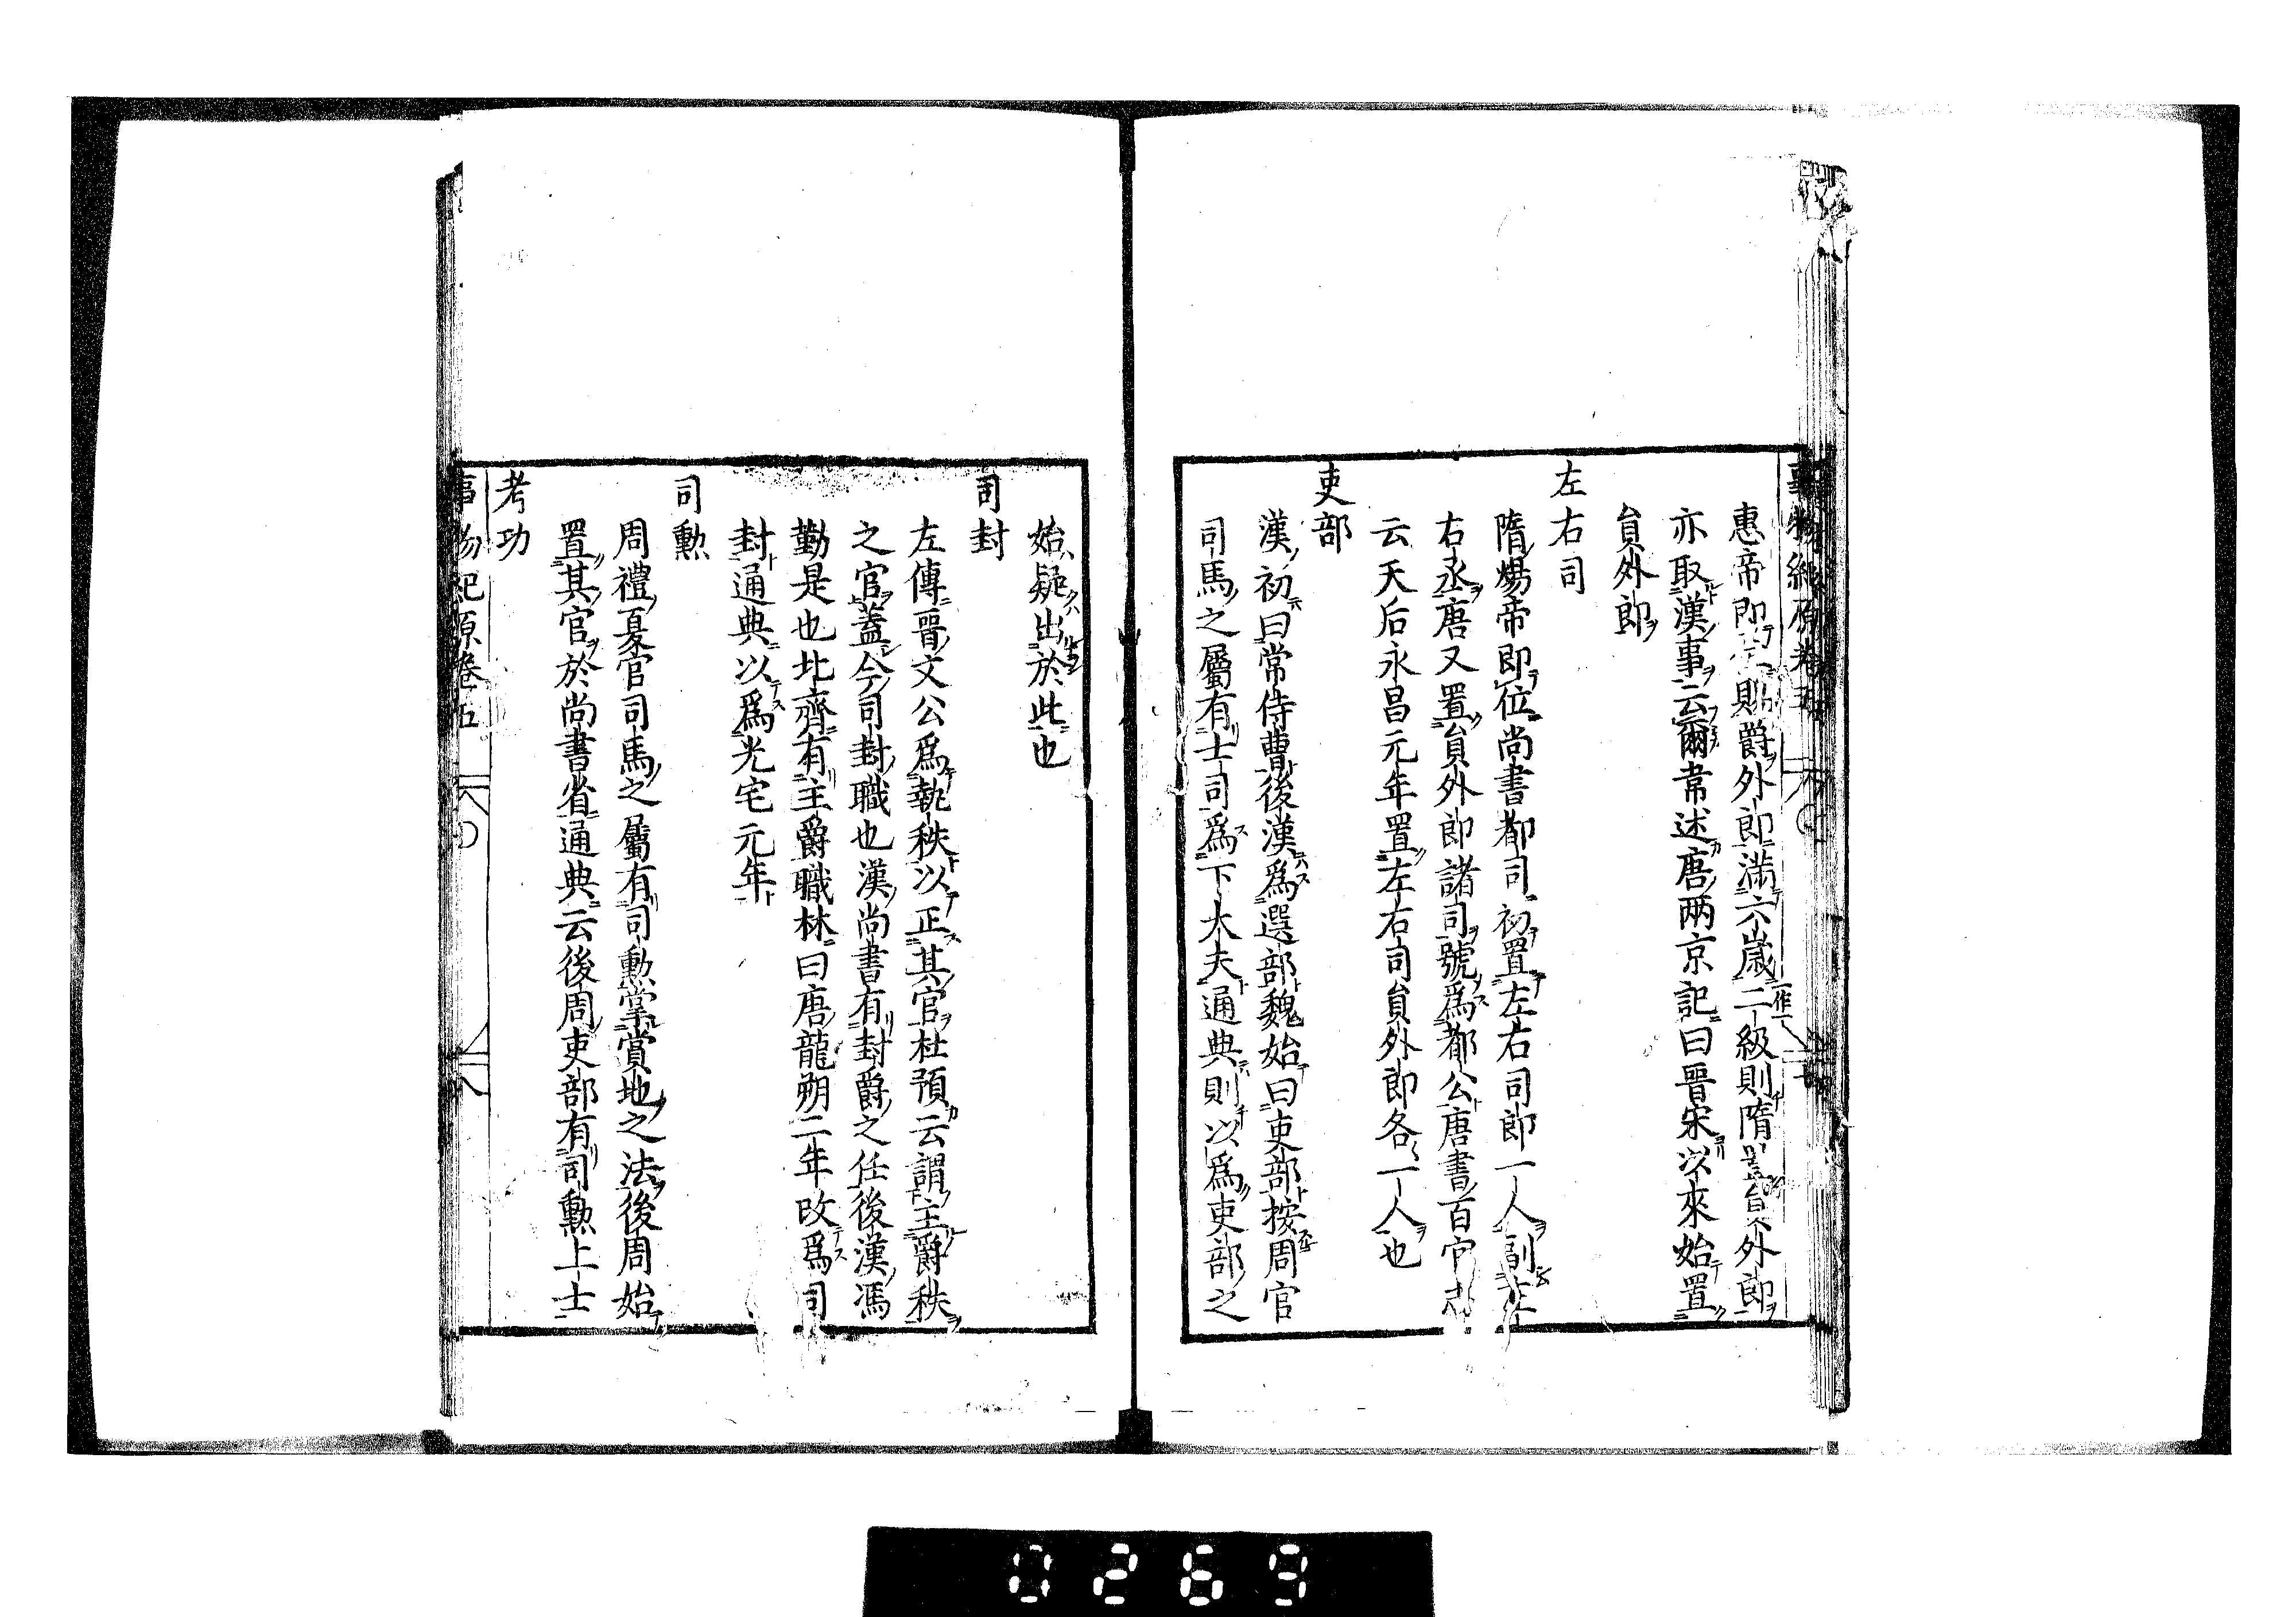 事物紀原卷五
惠帝即位賜爵外郎滿六歲二級則隋置貟外郎
一作一
亦取漢事云爾韋述唐兩京記曰晉宋以來始置
貟外郎
左右司
隋煬帝即位尚書都司初置左右司郎一人副左
右丞唐又置貟外郎諸司號爲都公唐書百官志
云天后永昌元年置左右司貟外郎各一人也
吏部
漢初曰常侍曹後漢爲選部魏始曰吏部按周官
司馬之屬有士司爲下大夫通典則以爲吏部之
始疑出於此也
司封
左傳晉文公爲執秩以正其官杜預云謂主爵秩
之官蓋今司封職也漢尚書有封爵之任後漢馮
勤是也北齊有主爵職林曰唐龍朔二年改爲司
封通典以爲光宅元年
司勲
周禮夏官司馬之屬有司勲掌賞地之法後周始
置其官於尚書省通典云後周吏部有司勲上士
考功
事物紀原卷五
0269